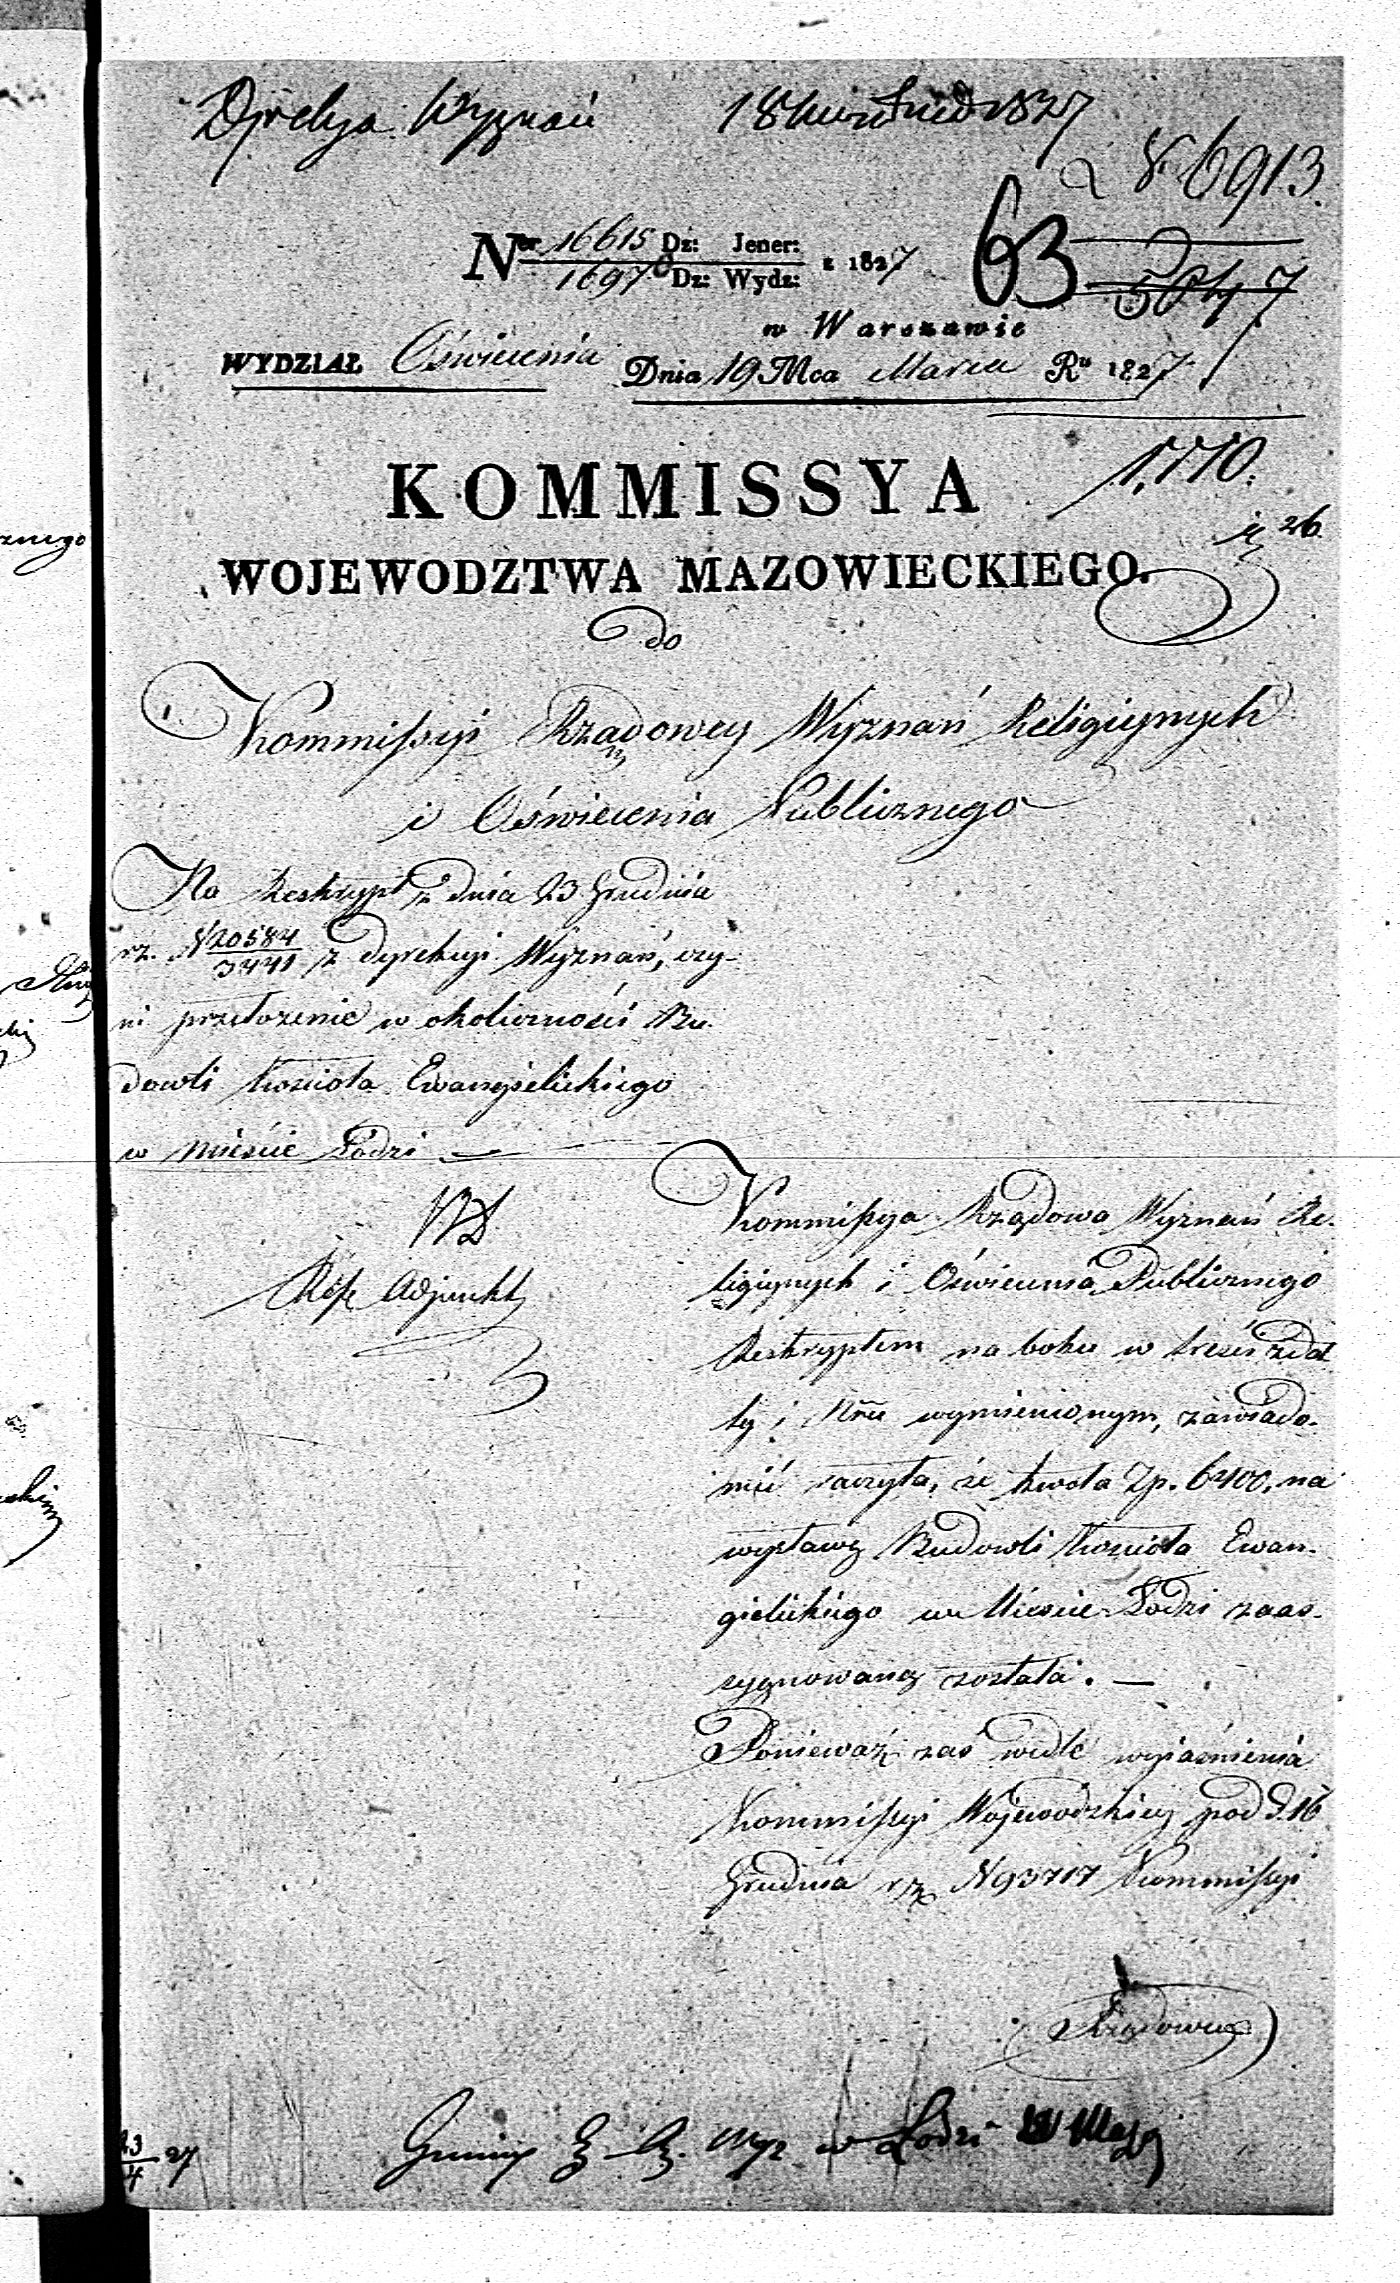 Dyrekcya Wyznań 18 kwietnia 1827
6913.
63
Ner 16615 Dz: Jener:
16978 Dz: Wydz: z 1827
w Warszawie
WYDZIAŁ Oświecenia Dnia 19 Mca Marca Ru 1827
1,170.
26.
KOMMISSYA
WOJEWODZTWA MAZOWIECKIEGO.
do
Kommissyi Rządowey Wyznań Religiynych
i Oświecenia Publicznego
Na Reskrypt z dnia 23 Grudnia
rz. N 20584/3441 z Dyrekcyi Wyznań, czy-
ni przełożenie w okoliczności Bu-
dowli Kościoła Ewangielickiego
w Mieście Łodzi —
Adjunkt
Kommissya Rządowa Wyznań Re-
ligiynych i Oświecenia Publicznego
Reskryptem na boku w treści, da-
ty i Nru wymienionym, zawiado-
mić raczyła, że kwota Zp. 6400, na
wystawę Budowli Kościoła Ewan-
gielickiego w Mieście Łodzi zaas-
sygnowaną została. —
Ponieważ zaś wedle wyiaśnienia
Kommissyi Wojewodzkiey pod d. 16
Grudnia rz. N 93717 Kommissyi
Rządowey
w Łodzi
23/4 27
znego